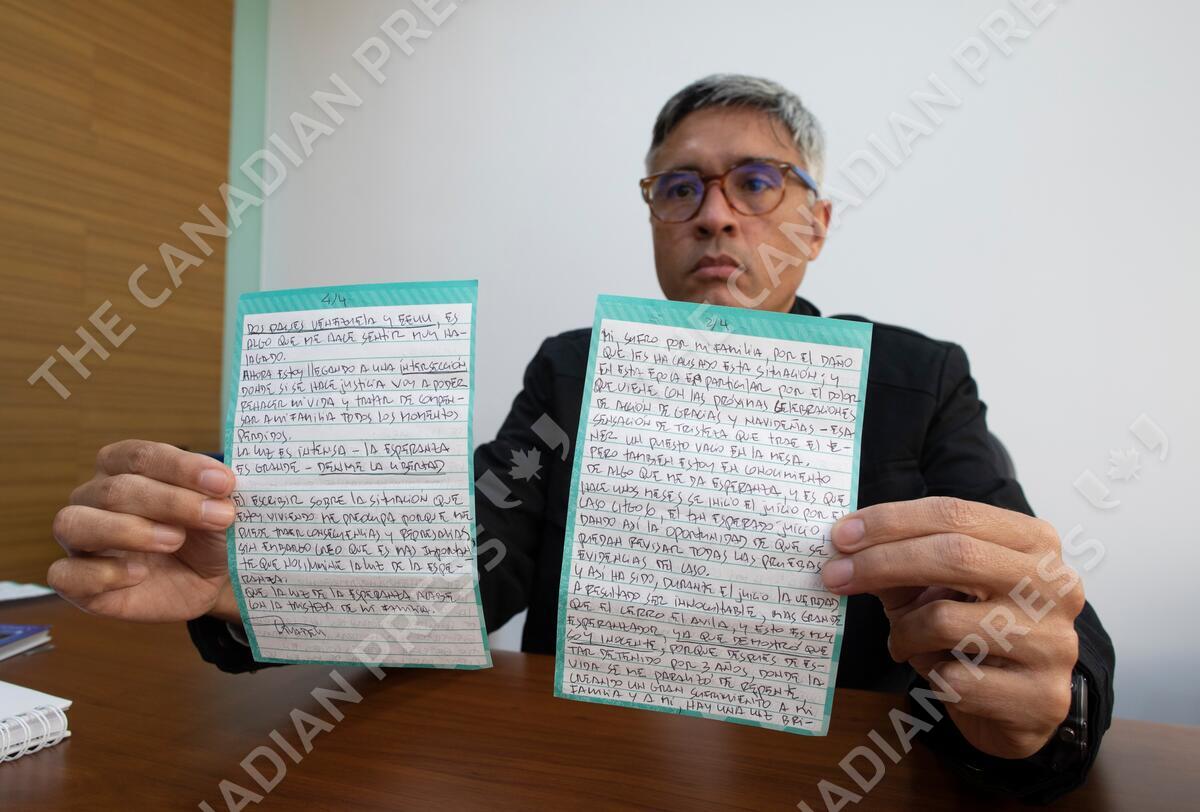 4/4
DOS PAISES VENEZUELA Y EEUU, ES
ALGO QUE ME HACE SENTIR MUY HA-
LAGADO.
AHORA ESTOY LLEGANDO A UNA INTERSECCIÓN
DONDE SI SE HACE JUSTICIA VOY A PODER
REHACER MI VIDA Y TRATAR DE COMPEN-
SAR A MI FAMILIA TODOS LOS MOMENTOS
PERDIDOS.
LA LUZ ES INTENSA - LA ESPERANZA
ES GRANDE - DENME LA LIBERTAD
EL ESCRIBIR SOBRE LA SITUACIÓN QUE
ESTOY VIVIENDO ME PREOCUPA PORQUE ME
PUEDE TRAER CONSECUENCIAS Y REPRESALIAS
SIN EMBARGO CREO QUE ES MAS IMPORTAN-
TE QUE NOS ILUMINE LA LUZ DE LA ESPE-
RANZA.
QUE LA LUZ DE LA ESPERANZA ACABE
CON LA TRISTEZA DE MI FAMILIA.
2/4
MI SUFRO POR MI FAMILIA, POR EL DAÑO
QUE LES HA CAUSADO ESTA SITUACIÓN; Y
EN ESTA EPOCA EN PARTICULAR POR EL DOLOR
QUE VIENE CON LAS PROXIMAS CELEBRACIONES
DE ACCION DE GRACIAS Y NAVIDEÑAS - ESA
SENSACIÓN DE TRISTEZA QUE TRAE EL TE-
NER UN PUESTO VACIO EN LA MESA.
PERO TAMBIEN ESTOY EN CONOCIMIENTO
DE ALGO QUE ME DA ESPERANZA, Y ES QUE
HACE UNOS MESES SE INICIO EL JUICIO POR EL
CASO CITGO 6, EL TAN ESPERADO JUICIO
DANDO ASI LA OPORTUNIDAD DE QUE SE
PUEDAN REVISAR TODAS LAS PRUEBAS Y
EVIDENCIAS DEL CASO.
Y ASI HA SIDO, DURANTE EL JUICIO LA VERDAD
A RESULTADO SER INNOCULTABLE, MAS GRANDE
QUE EL CERRO EL AVILA, Y ESTO ES MUY
ESPERANZADOR, YA QUE DEMOSTRÓ QUE
SOY INOCENTE, PORQUE DESPUES DE ES-
TAR DETENIDO POR 3 AÑOS, DONDE LA
VIDA SE ME PARALIZÓ DE REPENTE
CREANDO UN GRAN SUFRIMIENTO A MI
FAMILIA Y A MI, HAY UNA LUZ BRI-
THE CANADIAN PRESS
THE CANADIAN PRESS
CANADIAN PRESS
CANADIAN PRESS